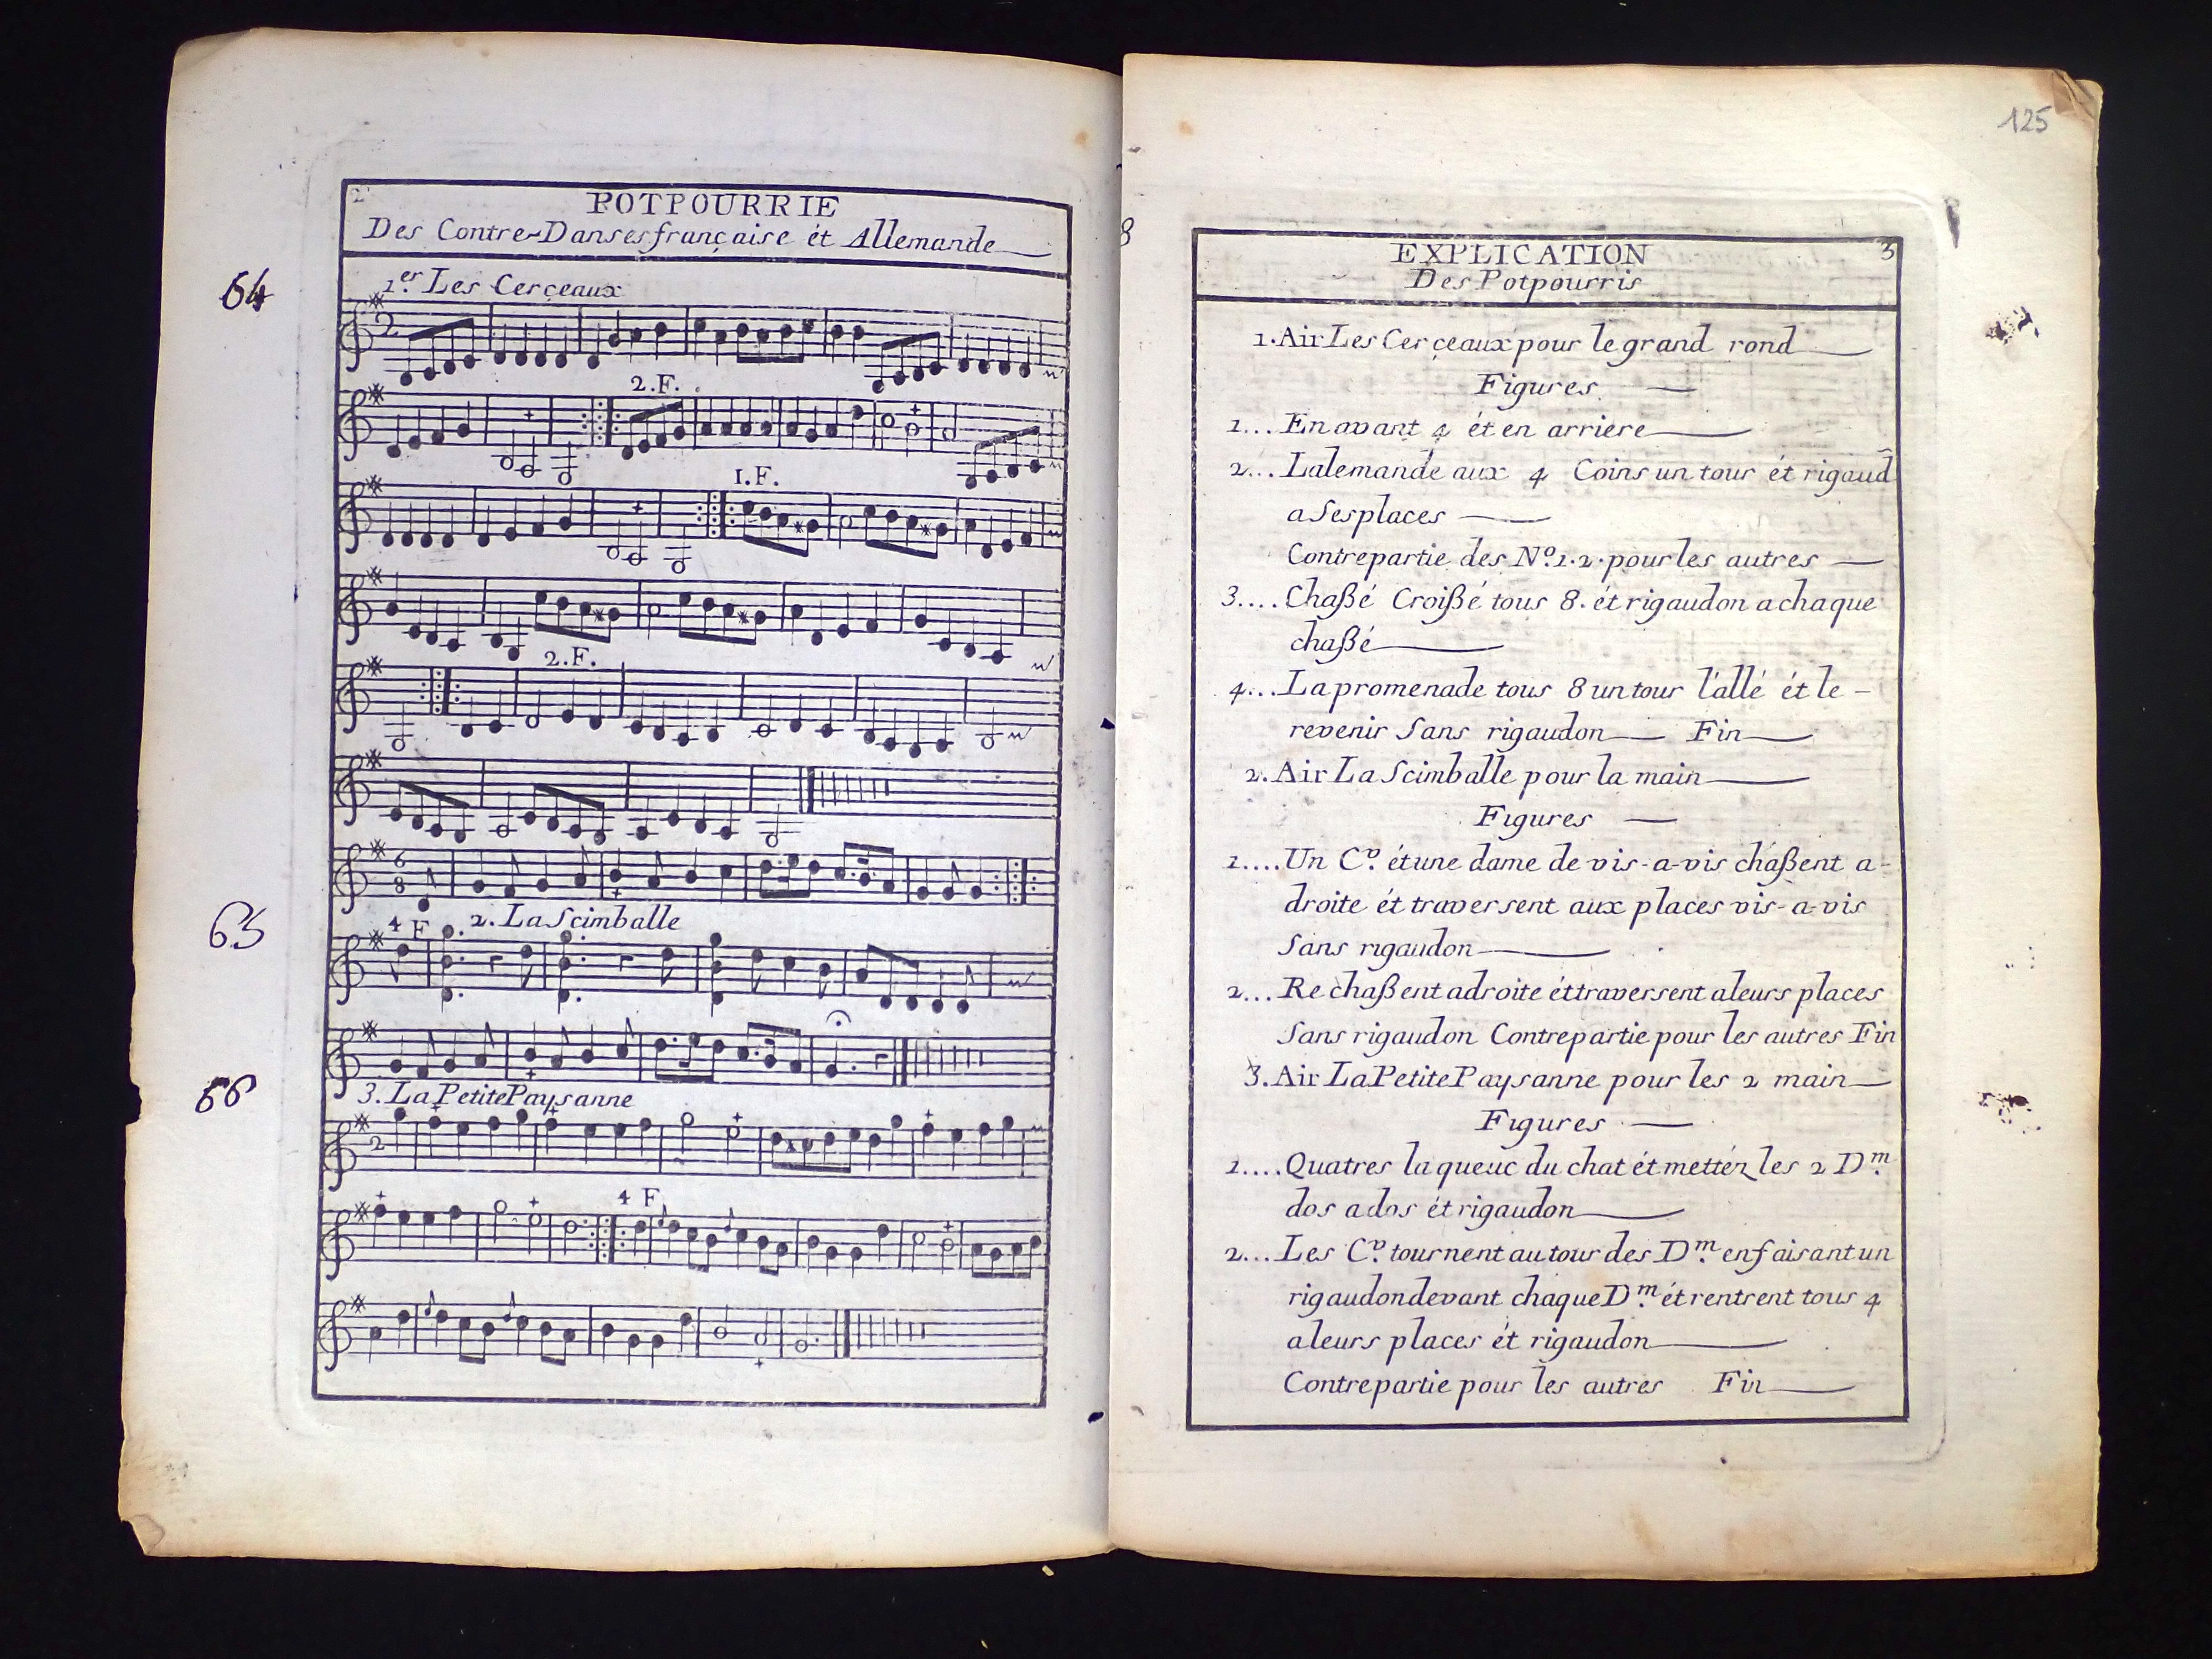 2
POTPOURRIE
Des Contre-Danses française ét Allemande
64
1.er Les Cerçeaux
2.F.
1.F.
2.F.
63
4 F
2. La Scimballe
66
3. La Petite Paysanne
4 F
125
8
EXPLICATION
3
Des Potpourris
1. Air Les Cerçeaux pour le grand rond
Figures
1... En avant 4 ét en arriere
2... Lalemande aux 4 Coins un tour ét rigaud
a Ses places
Contrepartie des No. 1. 2. pour les autres
3.... Chaßé Croißé tous 8. ét rigaudon a chaque
chaßé
4... La promenade tous 8 un tour l'allé ét le -
revenir Sans rigaudon Fin
2. Air La Scimballe pour la main
Figures
1.... Un Cv. ét une dame de vis-a-vis chaßent a-
droite ét traversent aux places vis-a-vis
Sans rigaudon
2... Re chaßent a droite ét traversent a leurs places
Sans rigaudon Contrepartie pour les autres Fin
3. Air La Petite Paysanne pour les 2 main
Figures
1.... Quatres la queue du chat ét mettéz les 2 Dm.
dos a dos ét rigaudon
2... Les Cv. tournent au tour des Dm. en faisant un
rigaudon devant chaque Dm. ét rentrent tous 4
a leurs places ét rigaudon
Contrepartie pour les autres Fin